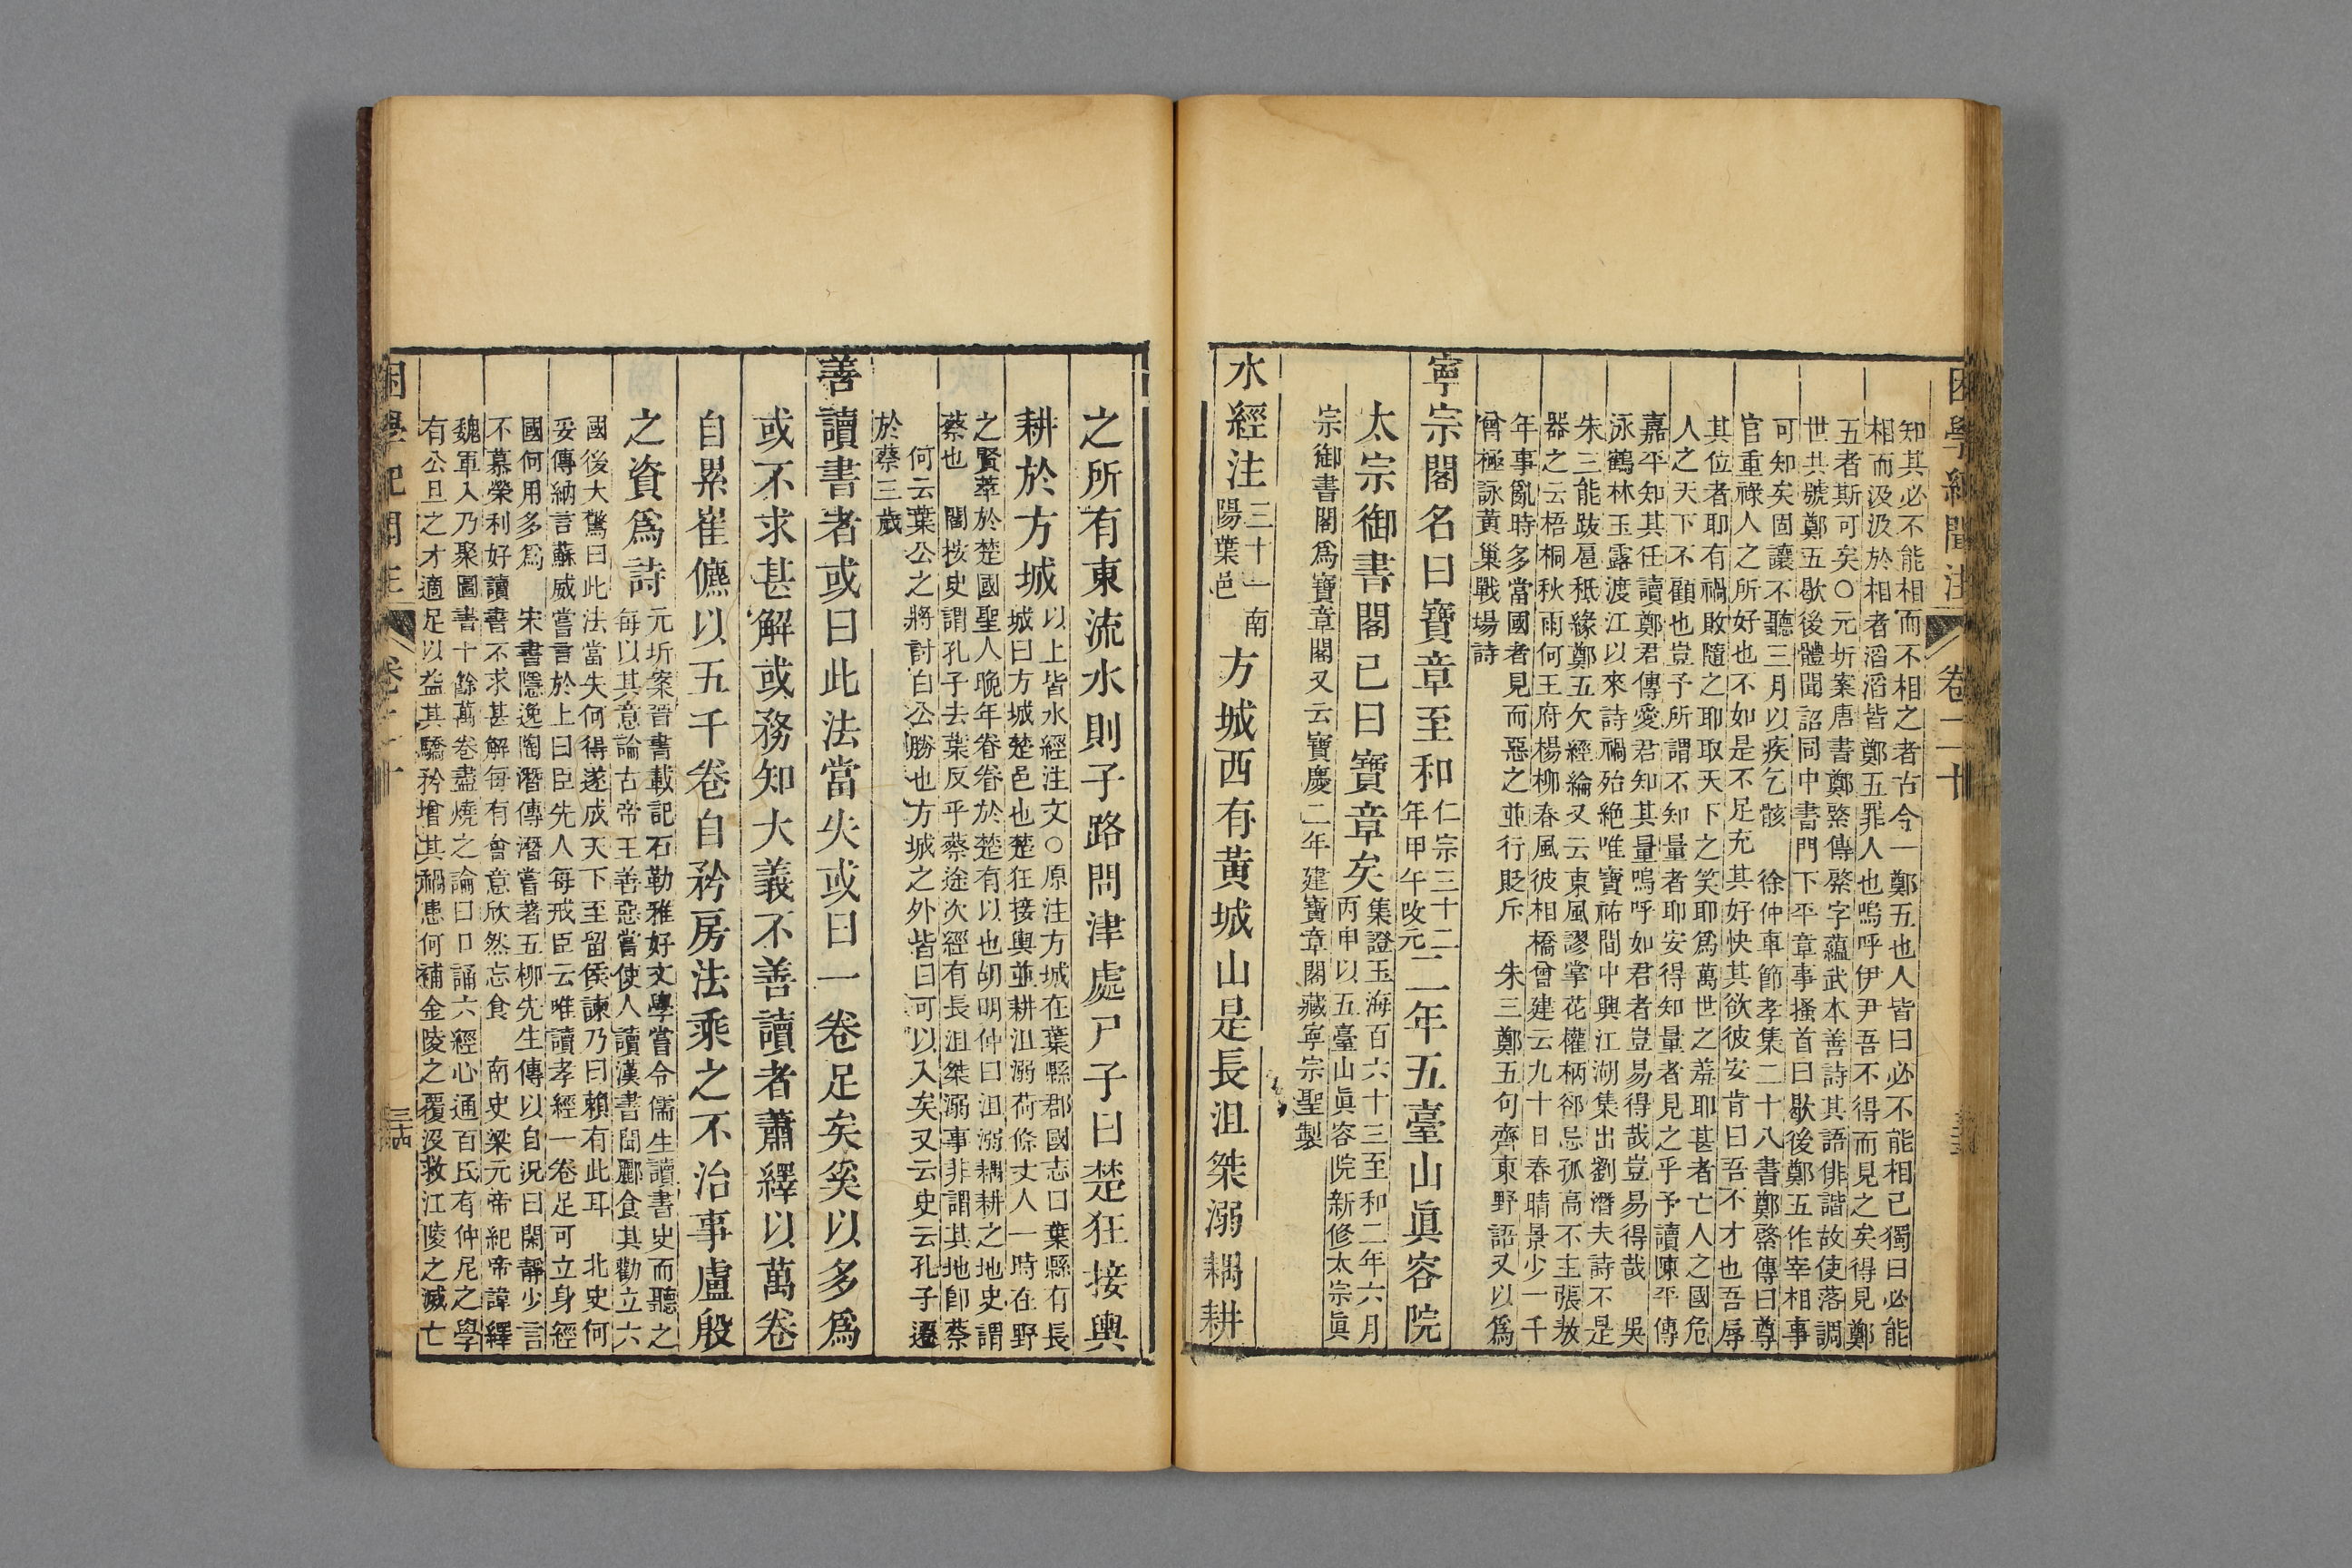 困學紀聞注 卷二十
知其必不能相而不相之者古今一鄭五也人皆曰必不能相己獨曰必能
相而汲汲於相者滔滔皆鄭五罪人也嗚呼伊尹吾不得而見之矣得見鄭
五者斯可矣○元圻案唐書鄭綮傳綮字蘊武本善詩其語俳諧故使落調
世共號鄭五歇後體聞詔同中書門下平章事搔首曰歇後鄭五作宰相事
可知矣固讓不聽三月以疾乞骸 徐仲車節孝集二十八書鄭綮傳曰尊
官重祿人之所好也不如是不足充其好快其欲彼安肯曰吾不才也吾辱
其位者耶有禍敗隨之耶取天下之笑耶爲萬世之羞耶甚者亡人之國危
人之天下不顧也豈予所謂不知量者耶安得知量者見之乎予讀陳平傳
嘉平知其任讀鄭君傳愛君知其量嗚呼如君者豈易得哉豈易得哉 吳
泳鶴林玉露渡江以來詩禍殆絶唯寶祐間中興江湖集出劉潛夫詩不是
朱三能跋扈秪緣鄭五欠經綸又云東風謬掌花權柄郤忌孤高不主張敖
器之云梧桐秋雨何王府楊柳春風彼相橋曾建云九十日春晴景少一千
年事亂時多當國者見而惡之並行貶斥 朱三鄭五句齊東野語又以爲
曾極詠黃巢戰場詩
寧宗閣名曰寶章至和仁宗三十二年甲午改元二年五臺山眞容院
太宗御書閣已曰寶章矣集證玉海百六十三至和二年六月丙申以五臺山眞容院新修太宗眞
宗御書閣爲寶章閣又云寶慶二年建寶章閣藏寧宗聖製
水經注三十一南陽葉邑方城西有黃城山是長沮桀溺耦耕
之所有東流水則子路問津處尸子曰楚狂接輿
耕於方城以上皆水經注文○原注方城在葉縣郡國志曰葉縣有長城曰方城楚邑也楚狂接輿並耕沮溺荷篠丈人一時在野
之賢萃於楚國聖人晚年眷眷於楚有以也胡明仲曰沮溺耦耕之地史謂
蔡也 閻按史謂孔子去葉反乎蔡途次經有長沮桀溺事非謂其地卽蔡
何云葉公之將討白公勝也方城之外皆曰可以入矣又云史云孔子遷
於蔡三歲
善讀書者或曰此法當失或曰一卷足矣奚以多爲
或不求甚解或務知大義不善讀者蕭繹以萬卷
自累崔儦以五千卷自矜房法乘之不治事盧殷
之資爲詩元圻案晉書載記石勒雅好文學嘗令儒生讀書史而聽之每以其意論古帝王善惡嘗使人讀漢書聞酈食其勸立六
國後大驚曰此法當失何得遂成天下至留侯諫乃曰賴有此耳 北史何
妥傳納言蘇威嘗言於上曰臣先人每戒臣云唯讀孝經一卷足可立身經
國何用多爲 宋書隱逸陶潛傳潛嘗著五柳先生傳以自況曰閑靜少言
不慕榮利好讀書不求甚解每有會意欣然忘食 南史梁元帝紀帝諱繹
魏軍入乃聚圖書十餘萬卷盡燒之論曰口誦六經心通百氏有仲尼之學
有公旦之才適足以益其驕矜增其禍患何補金陵之覆沒救江陵之滅亡
困學紀聞注 卷二十